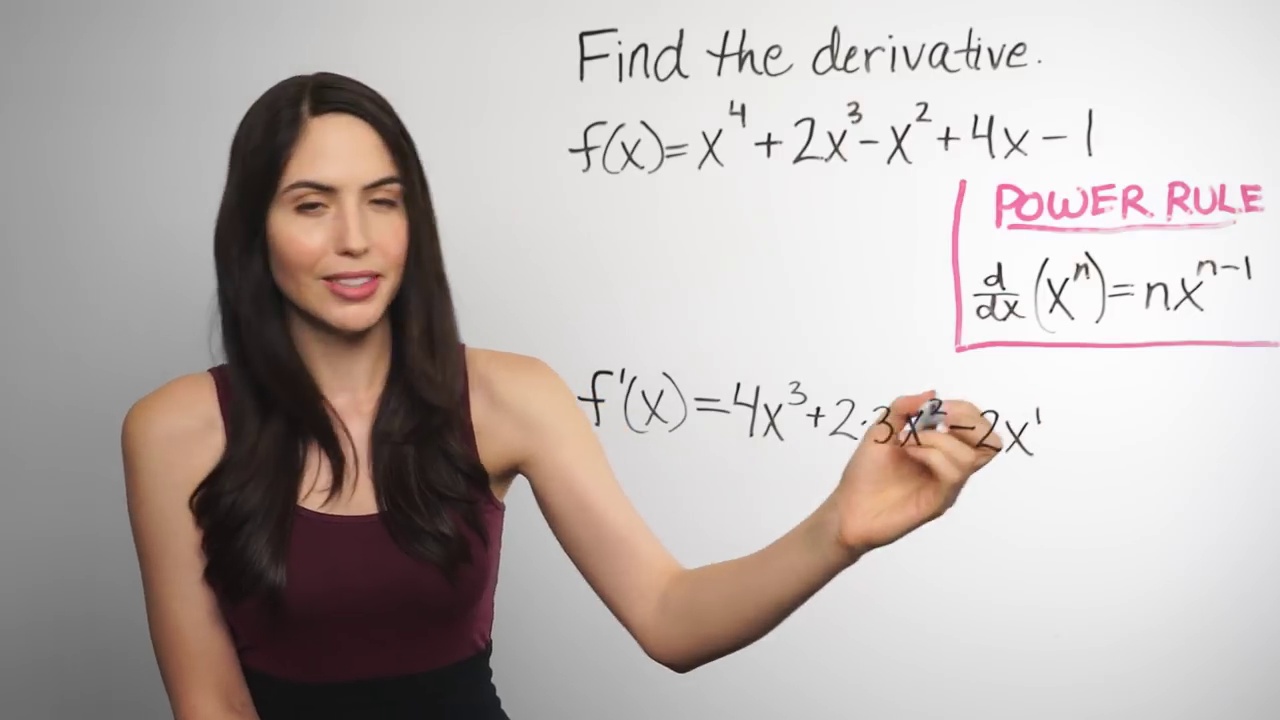 Find the derivative.
f(x)=x⁴+2x³-x²+4x-1
POWER RULE
d/dx (xⁿ)=nxⁿ⁻¹
f'(x)=4x³+2·3x²-2x¹